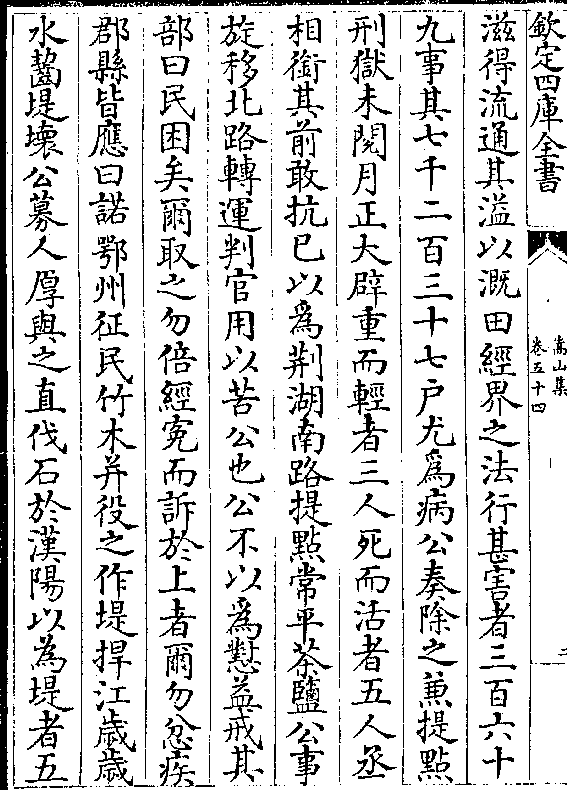 欽定四庫全書
嵩山集
卷五十四
二
滋得流通其溢以溉田經界之法行甚害者三百六十
九事其七千二百三十七户尤為病公奏除之兼提點
刑獄未閱月正大辟重而輕者三人死而活者五人丞
相銜其前敢抗已以為荆湖南路提點常平茶鹽公事
旋移北路轉運判官用以苦公也公不以為懟益戒其
部曰民困矣爾取之勿倍經寃而訴於上者爾勿忿疾
郡縣皆應曰諾鄂州征民竹木并役之作堤捍江歳歳
水齧堤壊公募人厚與之直伐石於漢陽以為堤者五